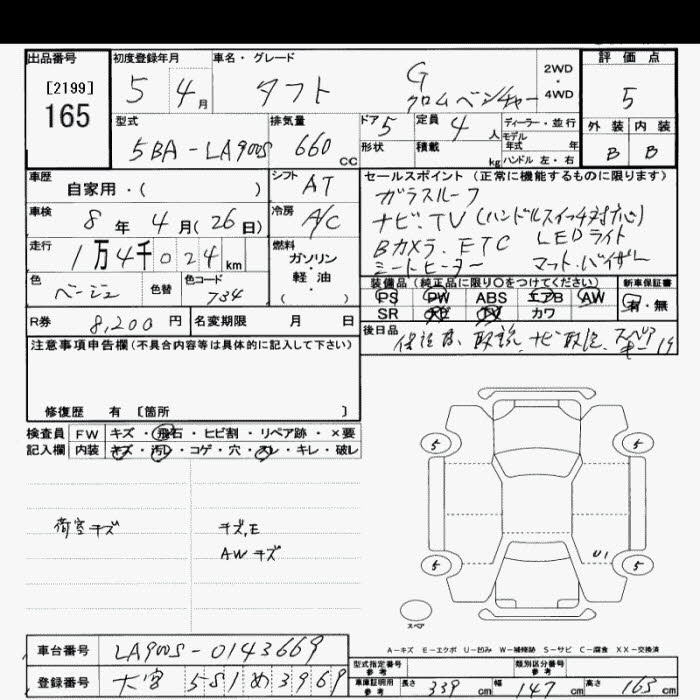 出品番号
[2199]
165
初度登録年月
5 4月
車名・グレード
タフト G クロムベンチャー
2WD・4WD
評価点
5
外装 内装
B B
型式
5BA-LA900S
排気量
660 CC
ドア 5
形状
定員 4人
積載 kg
ディーラー・並行
モデル
年式 年
ハンドル 左・右
車歴
自家用・( )
シフト AT
車検
8年 4月(26日)
冷房 A/C
走行
1万4千024km
燃料
ガソリン
・
軽油
・
( )
色
ベージュ
色替
色コード
734
R券 8,200円
名変期限 月 日
セールスポイント(正常に機能するものに限ります)
ガラスルーフ
ナビ.TV(ハンドルスイッチ対応)
Bカメラ.ETC LEDライト
シートヒーター マット.バイザー
装備品(純正品に限り○をつけてください)
PS PW ABS エアB AW
SR ナビ TV カワ
新車保証書
有・無
後日品
保証書.取説.ナビ取説.スペアキー 19
注意事項申告欄(不具合内容等は具体的に記入して下さい)
修復歴 有〔箇所 〕
検査員 FW キズ・飛石・ヒビ割・リペア跡・×要
記入欄 内装 キズ・汚レ・コゲ・穴・スレ・キレ・破レ
荷室キズ
キズ,E
AWキズ
5 5
U1
5 5
スペア
A-キズ E-エクボ U-凹み W-補修跡 S-サビ C-腐食 XX-交換済
車台番号 LA900S-0143669
登録番号 大宮 581め3969
型式指定番号
参考
類別区分番号
参考
車庫証明用
参考
長さ 339cm 幅 147cm 高さ 163cm